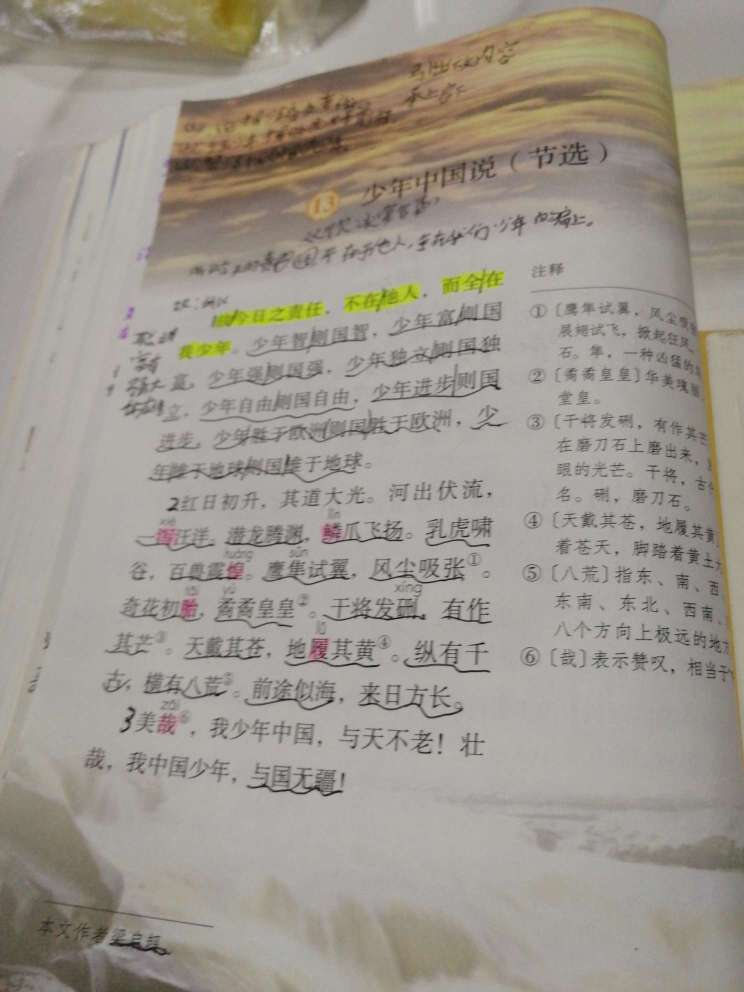 引出下文内容
承上启下
13 少年中国说（节选）
不在于他人,全在我们少年的肩上。
故今日之责任，不在他人，而全在
我少年。少年智则国智，少年富则国
富，少年强则国强，少年独立则国独
立，少年自由则国自由，少年进步则国
进步，少年胜于欧洲则国胜于欧洲，少
年雄于地球则国雄于地球。
2红日初升，其道大光。河出伏流，
xiè lín
一泻汪洋。潜龙腾渊，鳞爪飞扬。乳虎啸
huáng sǔn
谷，百兽震惶。鹰隼试翼，风尘吸张①。
tāi yù xíng
奇花初胎，矞矞皇皇②。干将发硎，有作
lǚ
其芒③。天戴其苍，地履其黄④。纵有千
古，横有八荒⑤。前途似海，来日方长。
zāi
3美哉⑥，我少年中国，与天不老！壮
哉，我中国少年，与国无疆！
本文作者梁启超。
注释
①〔鹰隼试翼，风尘吸
展翅试飞，掀起狂风，
石。隼，一种凶猛的
②〔矞矞皇皇〕华美瑰丽
堂皇。
③〔干将发硎，有作其芒
在磨刀石上磨出来，
眼的光芒。干将，古
名。硎，磨刀石。
④〔天戴其苍，地履其黄
着苍天，脚踏着黄土大
⑤〔八荒〕指东、南、西
东南、东北、西南、
八个方向上极远的地方
⑥〔哉〕表示赞叹，相当于